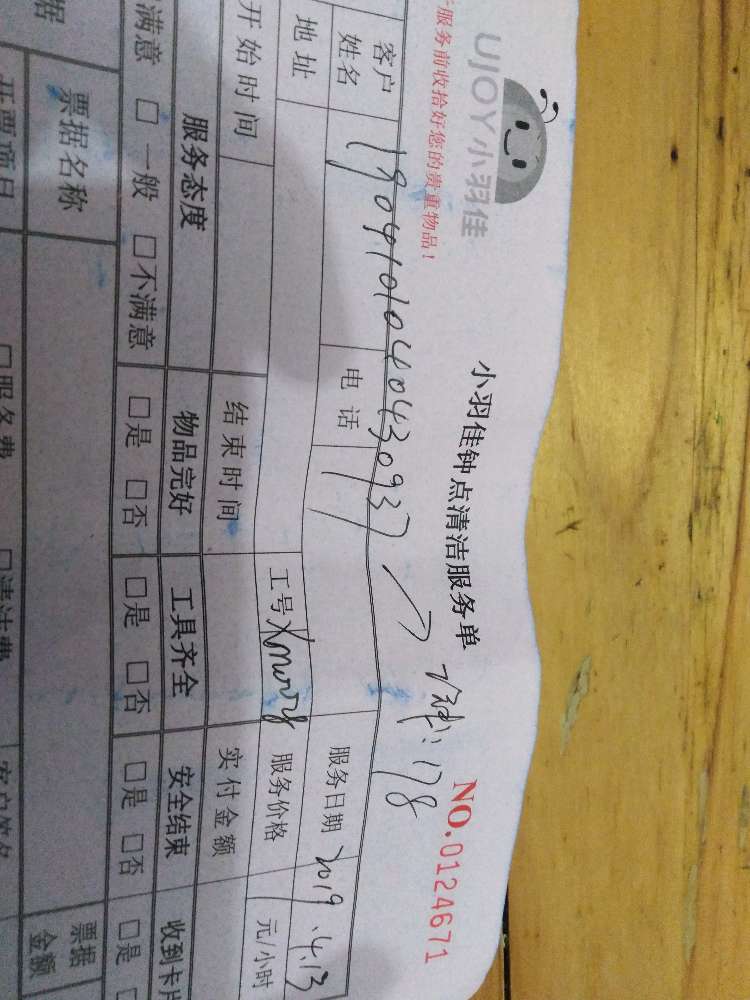 UJOY小羽佳
服务前收拾好您的贵重物品！
小羽佳钟点清洁服务单
NO.0124671
178
19041010404430937
客户姓名
电话
服务日期 2019.4.13
地址
工号
服务价格 元/小时
开始时间
结束时间
实付金额
服务态度
物品完好
工具齐全
安全结束
收到卡
满意 □ 一般 □不满意
□是 □否
□是 □否
□是 □否
□是
据
票据名称
票据金额
开票项目
□服务费
□清洁费
客户签名